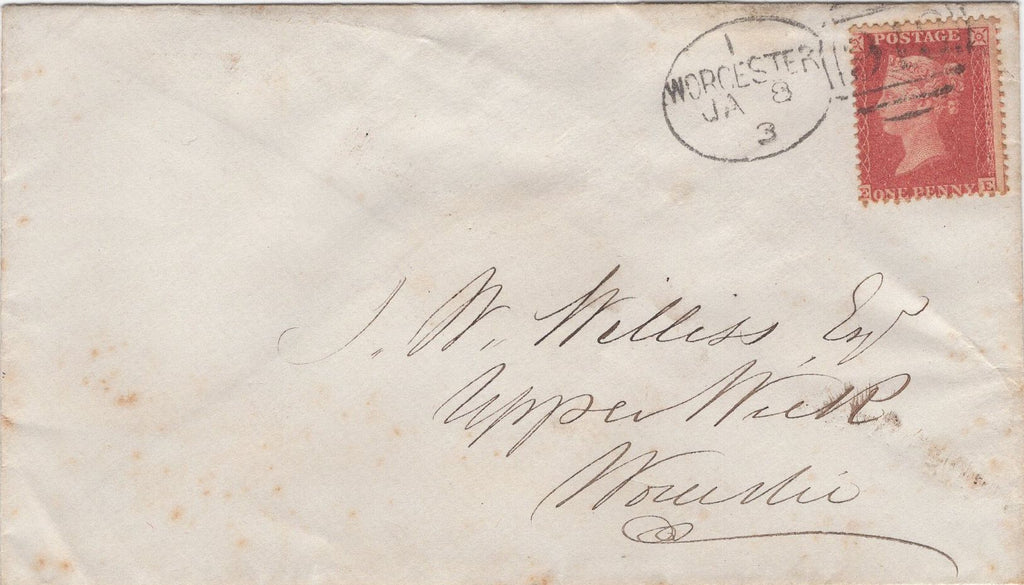 1
WORCESTER
JA 8
3
POSTAGE
E ONE PENNY E
J. W. Williss, Esq
Upper Wick
Worcester